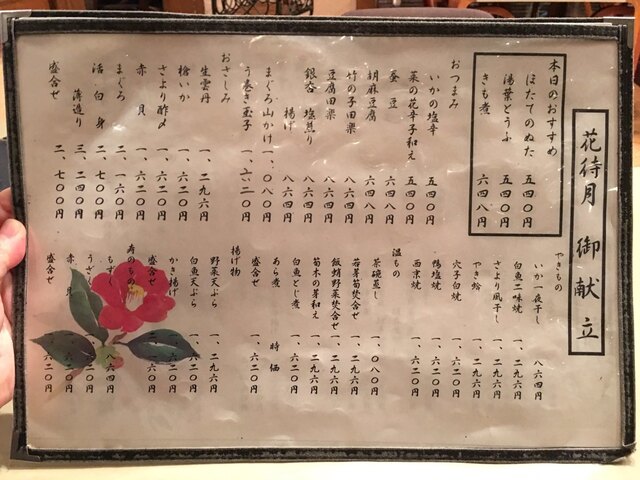 花待月 御献立
本日のおすすめ
ほたてのぬた 五四〇円
湯葉とうふ 五四〇円
きも煮 六四八円
おつまみ
いかの塩辛 五四〇円
菜の花辛子和え 五四〇円
蚕豆 六四八円
胡麻豆腐 六四八円
竹の子田楽 八六四円
豆腐田楽 八六四円
銀杏 塩煎り 八六四円
揚げ 八六四円
まぐろ山かけ 一、〇八〇円
う巻き玉子 一、六二〇円
おさしみ
生雲丹 一、二九六円
槍いか 一、六二〇円
さより酢〆 一、六二〇円
赤貝 一、六二〇円
まぐろ 二、一六〇円
活白身 二、七〇〇円
薄造り 三、二四〇円
盛合せ 二、七〇〇円
やきもの
いか一夜干し 八六四円
白魚二味焼 一、二九六円
さより風干し 一、二九六円
やき蛤 一、二九六円
穴子白焼 一、六二〇円
鴨塩焼 一、六二〇円
西京焼 一、六二〇円
温もの
茶碗蒸し 一、〇八〇円
若芽筍焚合せ 一、二九六円
飯蛸野菜焚合せ 一、二九六円
筍木の芽和え 一、二九六円
白魚とじ煮 一、六二〇円
あら煮 時価
盛合せ 一、六二〇円
揚げ物
野菜天ぷら 一、二九六円
白魚天ぷら 一、六二〇円
かき揚げ 二〇円
盛合せ 二〇円
酢のもの
もずく 八六四円
うざく 二〇円
赤貝 六二〇円
盛合せ 六二〇円